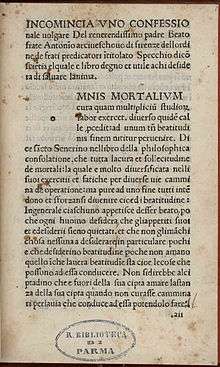 INCOMINCIA VNO CONFESSIO
nale vulgare Del reuerendissimo padre Beato
frate Antonio arciueschouo di firenze dellordi
ne de frati predicatori ītitolato Specchio di cō
scientia el quale e libro degno et utile a chi deside
ra di saluare lanima.
MNIS MORTALIVM
cura quam multiplicū studioꝝ
labor exercet. diuerso quidē cal
le ꝓcedit ad unum tn̄ beatitudi
nis finem nititur peruenire. Di
ce sicto Seuerino nel libro della philosophica
consolatione, che tutta lacura et sollecitudine
de mortali la quale e molto diuersificata nelli
suoi exercitii et fatiche per diuerse uie cammi
na et operatione: ma pure ad uno fine tutti intē
dono et sforzansi diuenire cioe di beatitudine:
Ingenerale ciaschuno appetisce desser beato, po
che ogni huomo desidera che gliappetiti suoi
et e desiderii sieno quietati, et che non glimāchi
chosa nessuna a desiderare: in particulare pochi
e che desiderino beatitudine poche non amano
quello ī che lauera beatitudie sta cioe lecose che
possono ad essa conducere. Non si direbbe al ci
ptadino che e fuori della sua cipta amare lastan
za della sua cipta quando non curasse cammina
re per lauia che conduce ad essa potendolo fare
aii
R. BIBLIOTECA
DI
PARMA